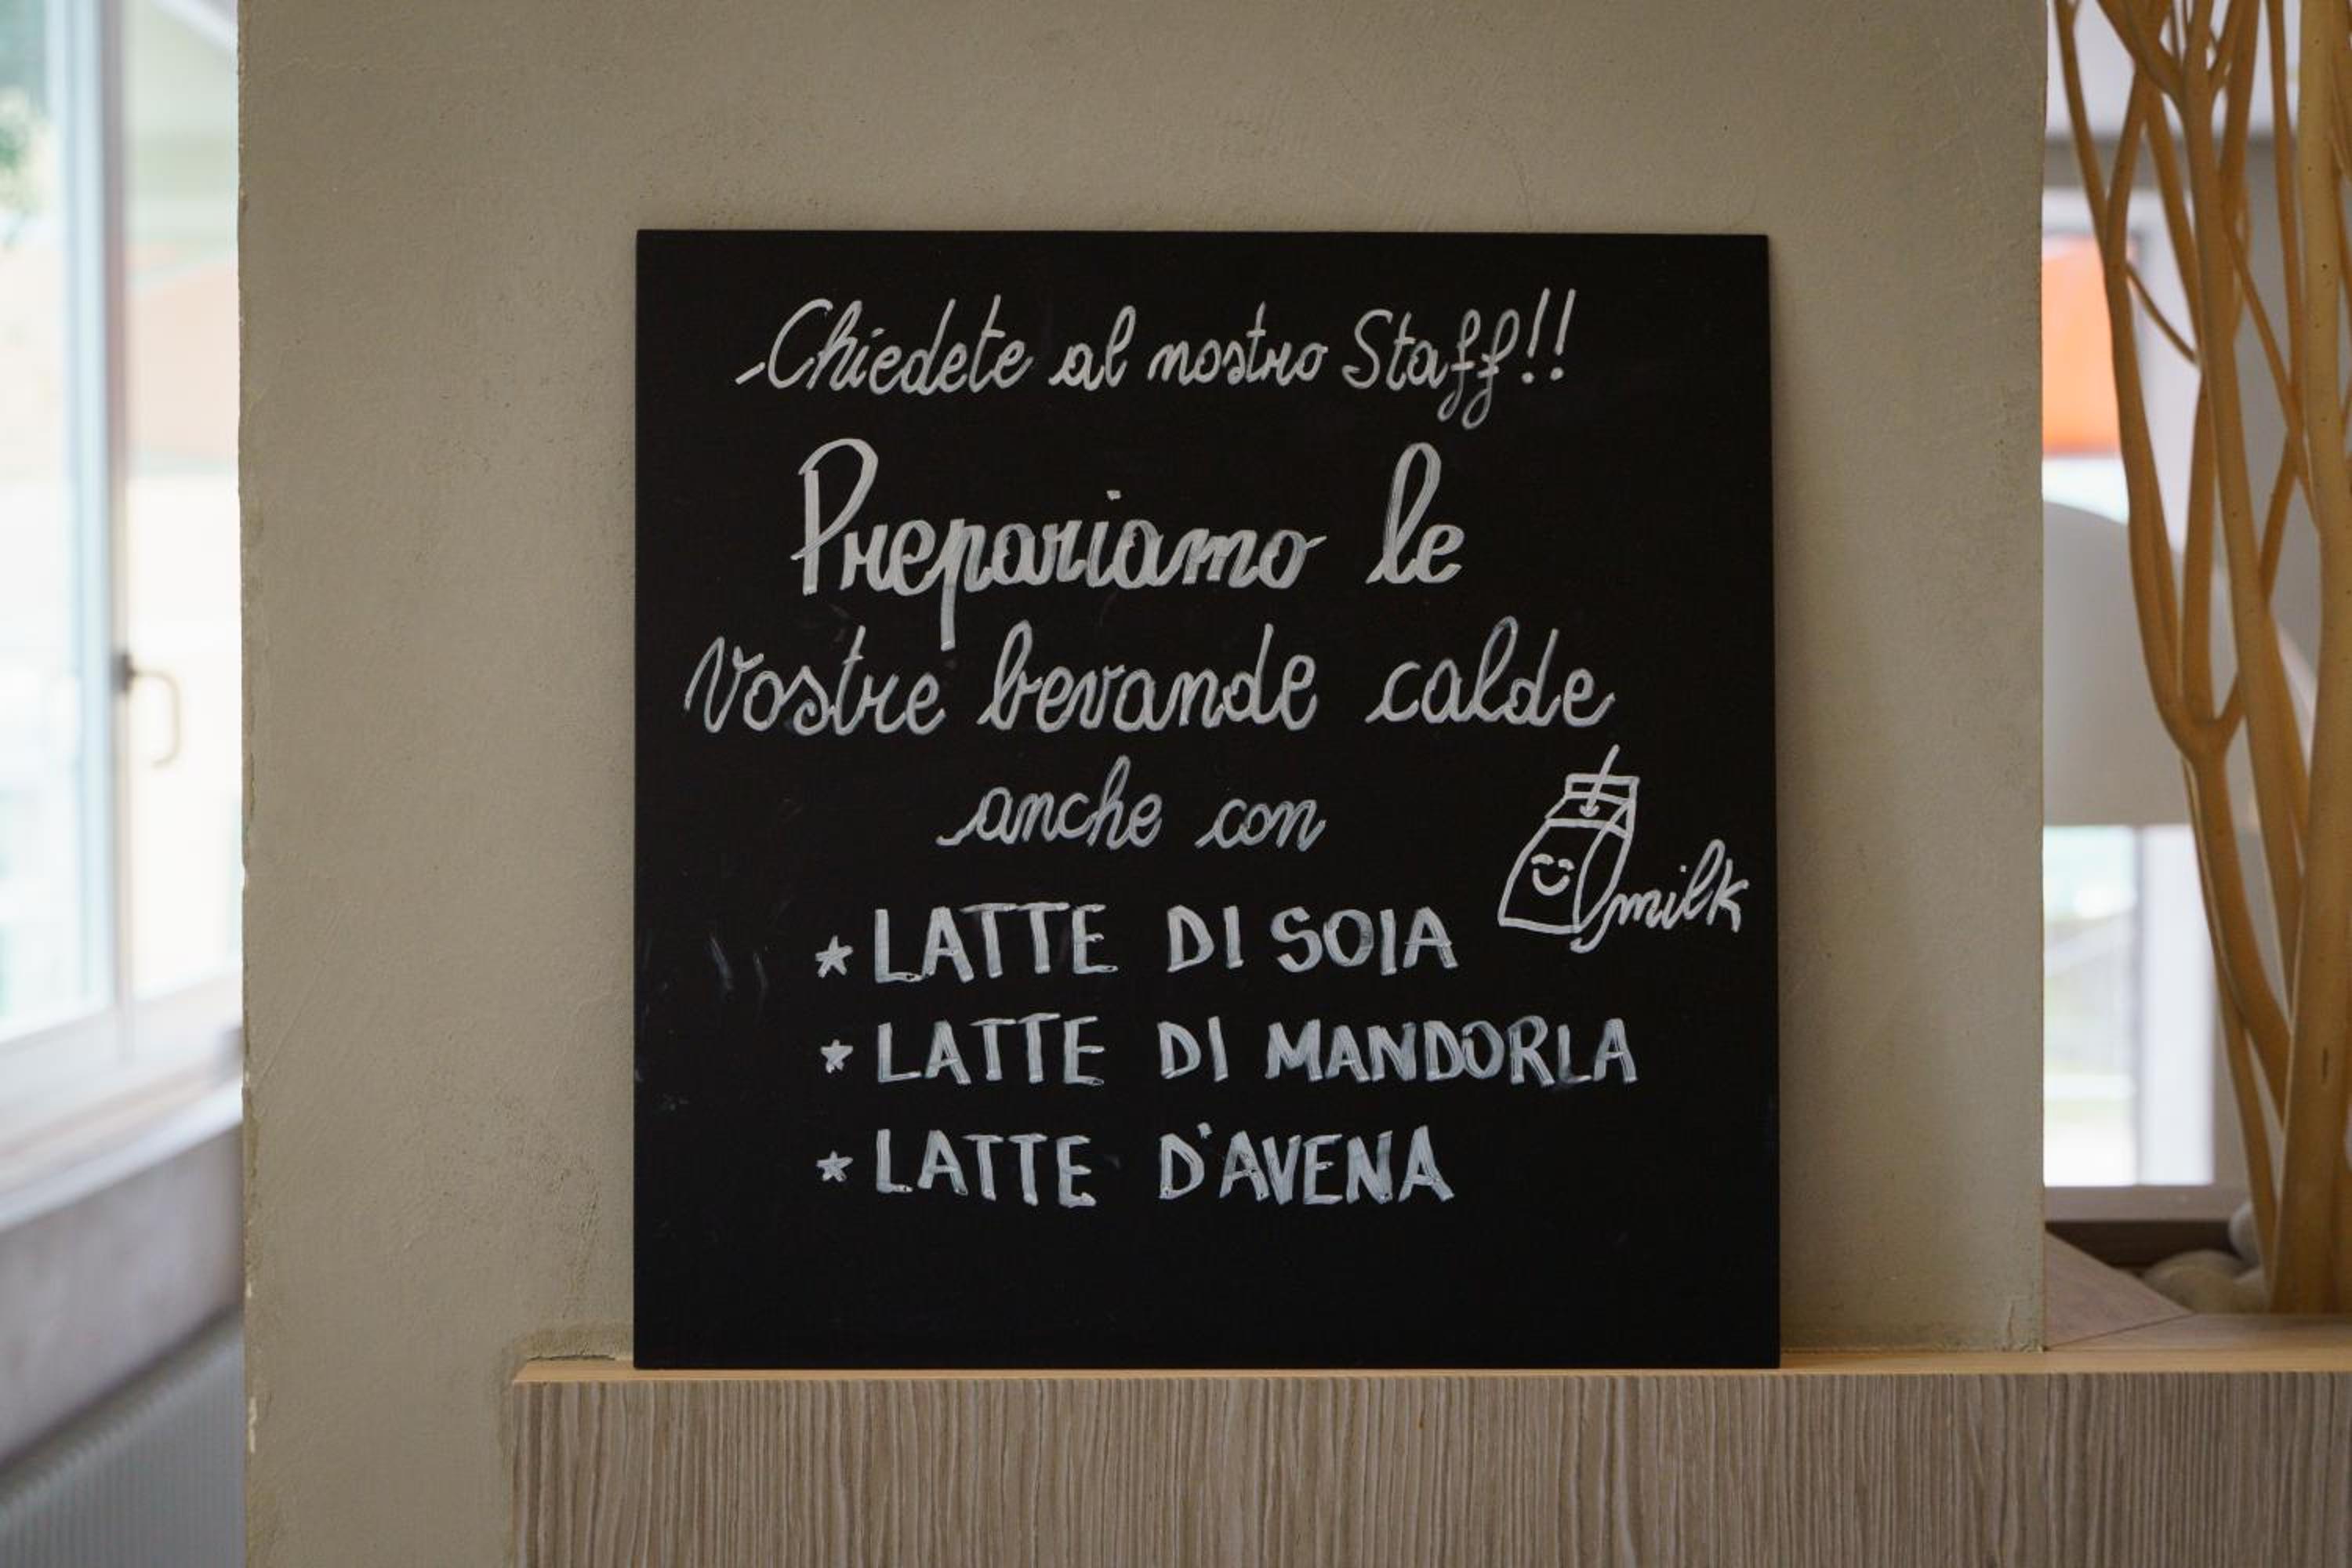 Chiedete al nostro Staff!!
Prepariamo le
Vostre bevande calde
anche con
milk
* LATTE DI SOIA
* LATTE DI MANDORLA
* LATTE D'AVENA